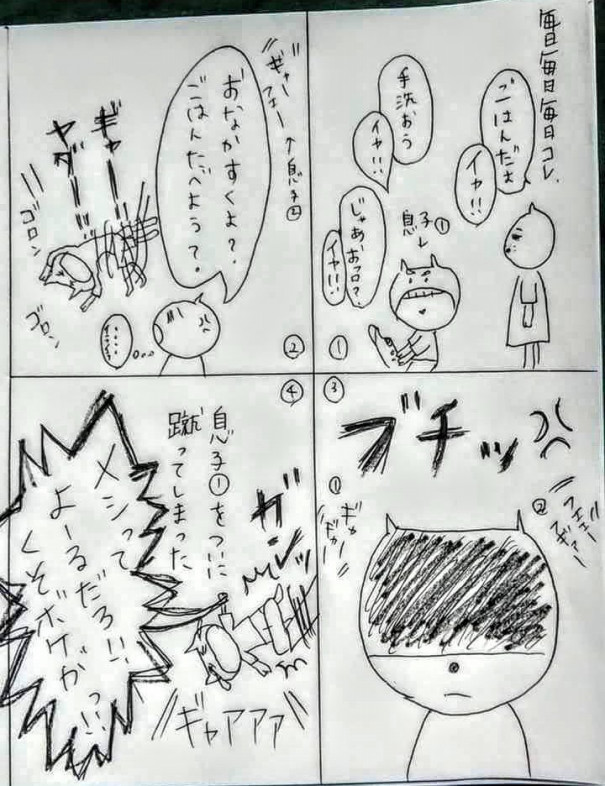 毎日毎日毎日コレ、
ごはんだよ
イヤ!!
手洗おう
イヤ!!
じゃあおフロ?
イヤ!!
息子①
①
ギャー
フェー
↑息子②
おなかすくよ?
ごはんたべようって。
ギャーーー
ヤダーーー
ゴロン
ゴロン
②
③
ブチッ
①
ギャ
ギャ
②
フェェー
④
息子①をついに
蹴ってしまった
メシって
よーるだろ!!
くそボケがっ!!
ギャアアア